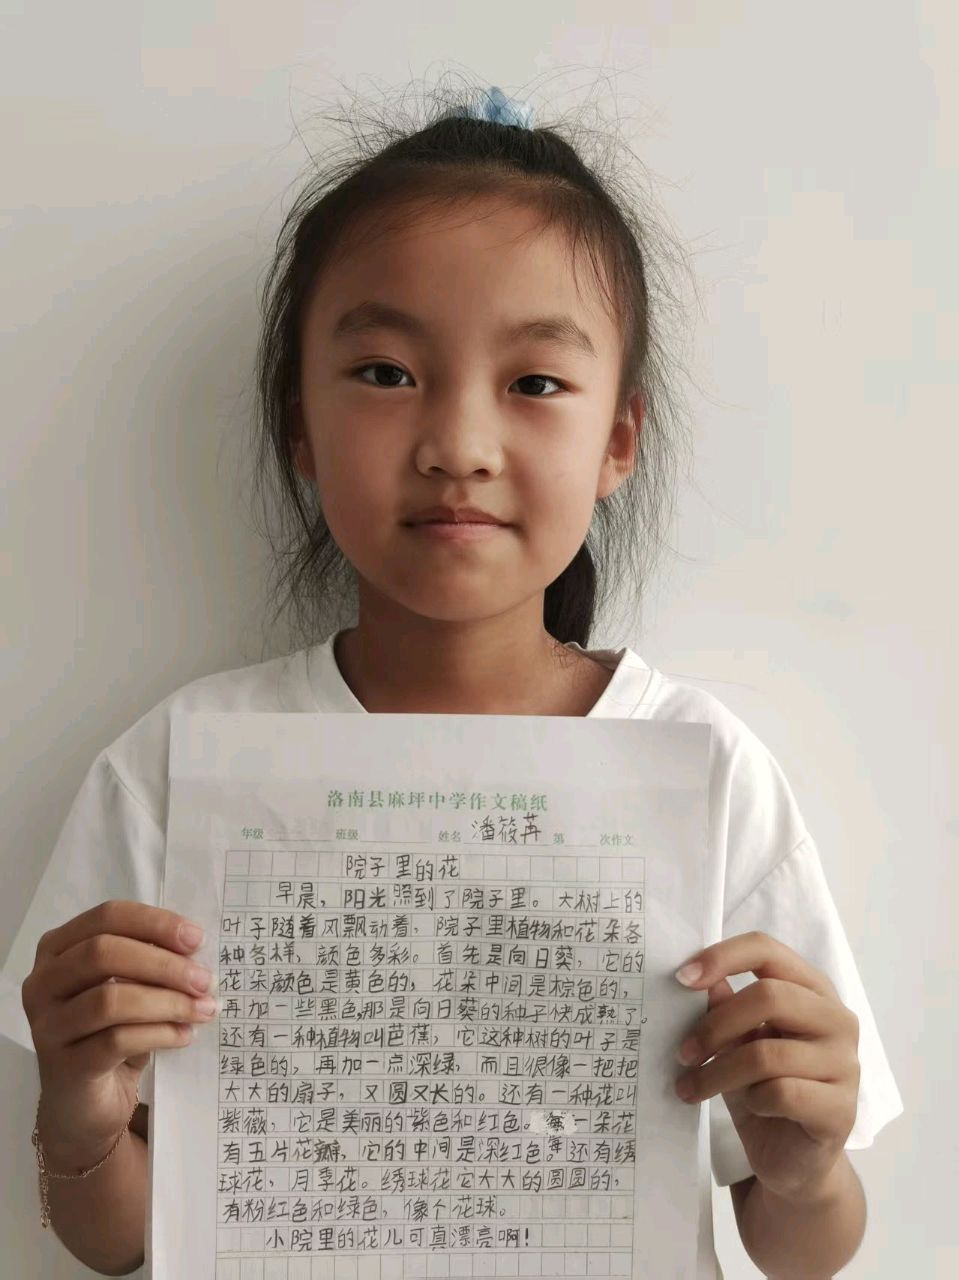 洛南县麻坪中学作文稿纸
年级 班级 姓名 潘筱苒 第 次作文
院子里的花
早晨，阳光照到了院子里。大树上的
叶子随着风飘动着，院子里植物和花朵各
种各样，颜色多彩。首先是向日葵，它的
花朵颜色是黄色的，花朵中间是棕色的，
再加一些黑色，那是向日葵的种子快成熟了。
还有一种植物叫芭蕉，它这种树的叶子是
绿色的，再加一点深绿，而且很像一把把
大大的扇子，又圆又长的。还有一种花叫
紫薇，它是美丽的紫色和红色。每一朵花
有五片花瓣，它的中间是深红色。还有绣
球花，月季花。绣球花它大大的圆圆的，
有粉红色和绿色，像个花球。
小院里的花儿可真漂亮啊！